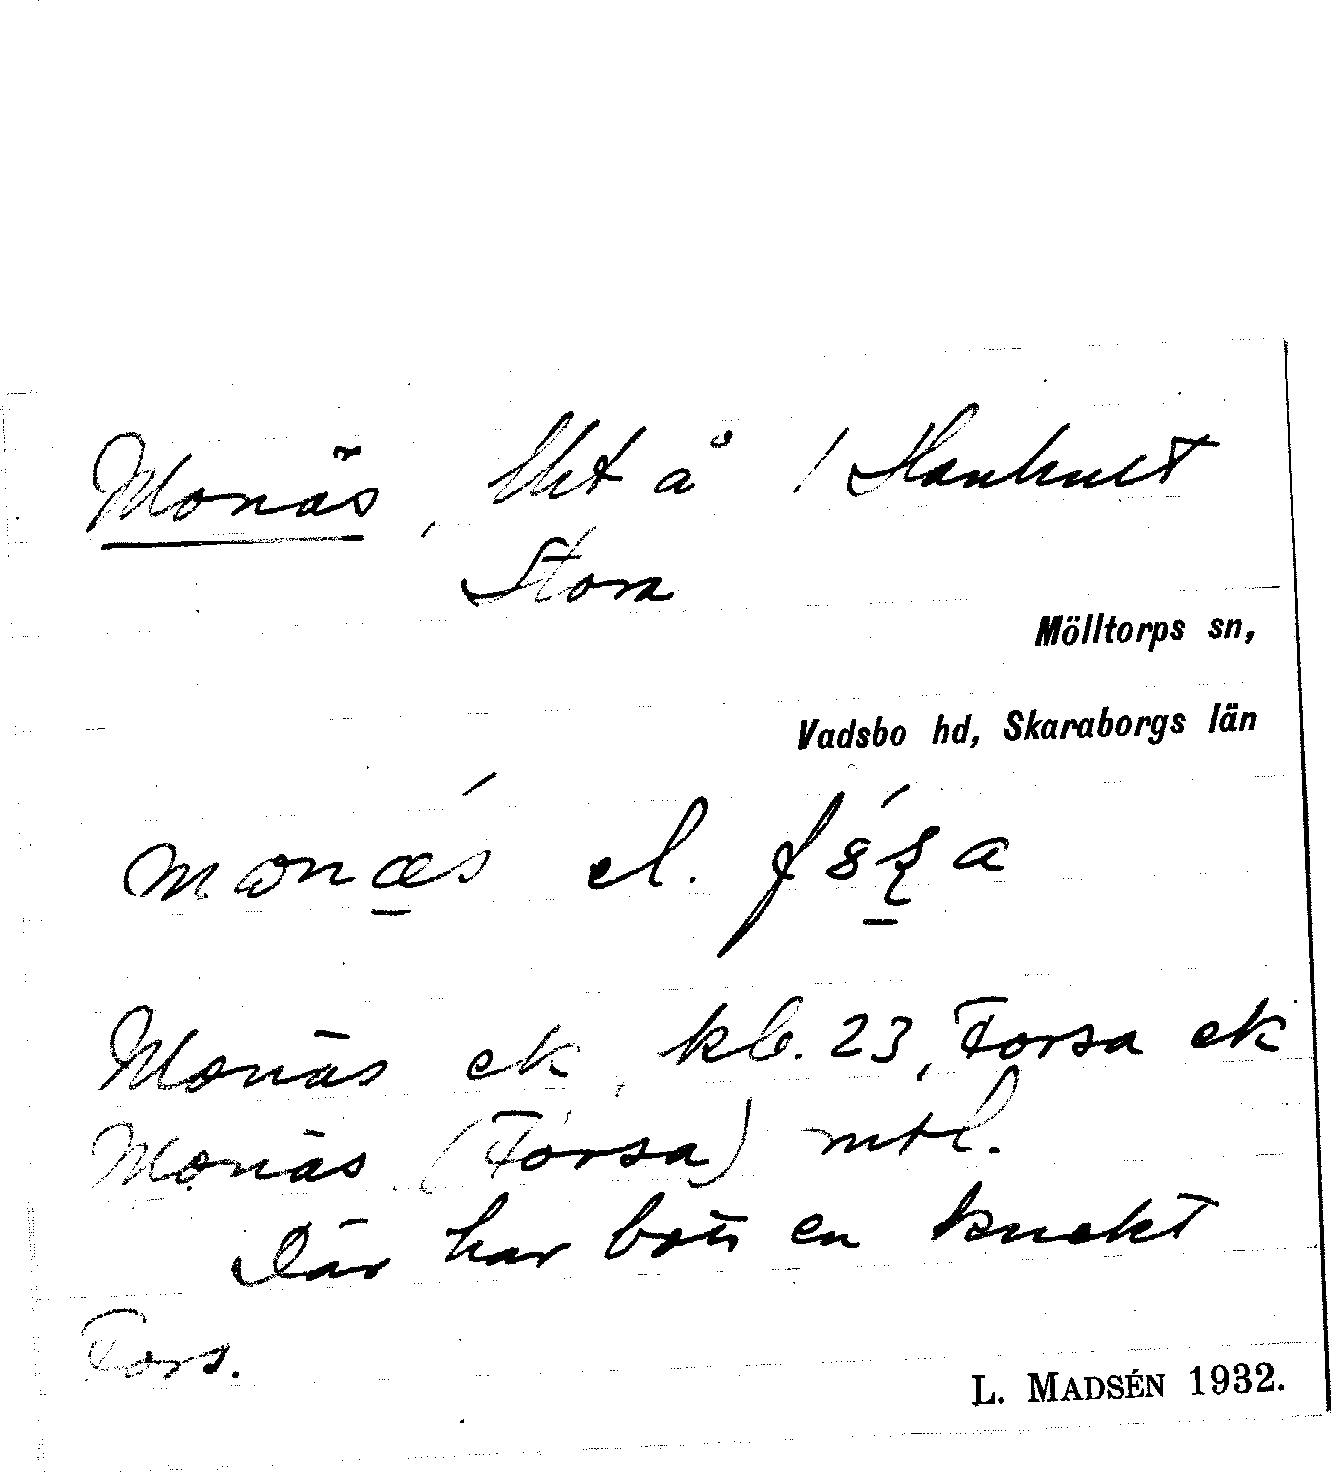 Monäs, lht å 1 Hanhult
Stora
Mölltorps sn,
Vadsbo hd, Skaraborgs län
el.
Monäs ek, kb. 23, Forsa ek
Monäs (Forsa) mtl.
Där har bott en knekt
Fors.
L. MADSÉN 1932.